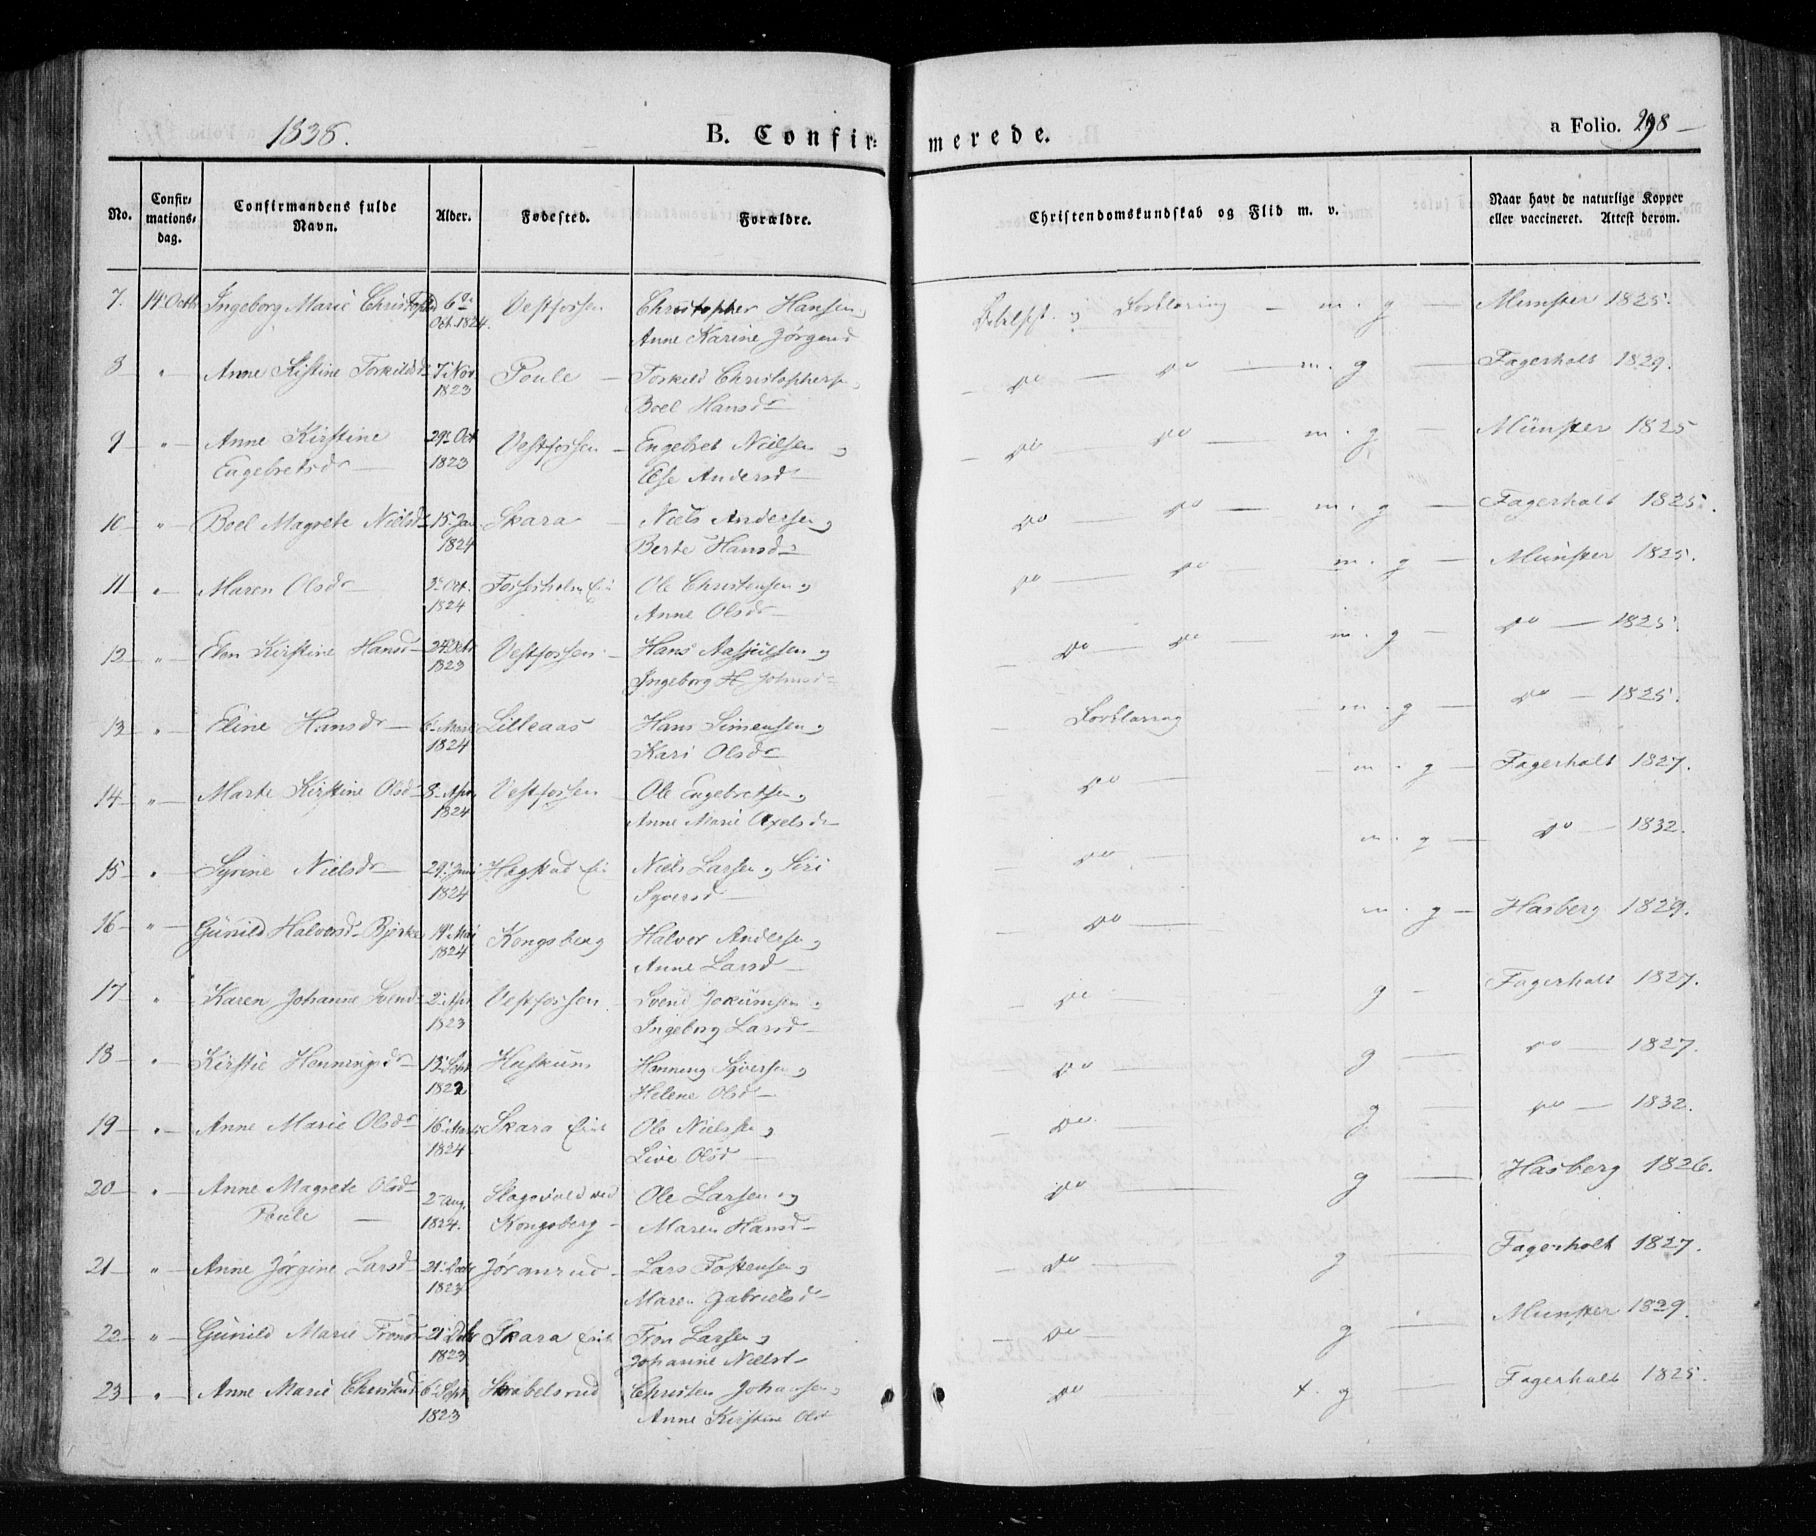 1838.
B. Confirmerede.
a Folio. 298
No.
Confirmationsdag.
Confirmandens fulde Navn.
Alder.
Fødested.
Forældre.
Christendomskundskab og Flid m. v.
Naar havt de naturlige Kopper eller vaccineret. Attest derom.
7. 14 Octb Ingeborg Marie 6 Oct. 1824. Vestfossen Christopher Hansen og m. g Munster 1825.
Anne Karine Jørgensd
8 " Anne Kistine Torkildsd 7 Nov 1823 Poule Torkild Christophersen do do m. g Fagerholt 1829.
Boel Hansdr
9 " Anne Kirstine 29 Oct 1823 Vestfossen Engebret Nielsen og do do m. g Münster 1825
Engebretsdr Else Andersd
10 " Boel Magrete Nielsd 15 Jan 1824 Skara Niels Andersen og do do m. g Fagerholt 1825.
Berte Hansd
11 " Maren Olsdr Oct. 1824 Fossesholm Ole Christensen og do do m. g Munster 1825.
Anne Olsdr
12 " Kirstine Hansd 24 Octr 1823 Vestfossen Hans og do do m. g do 1825.
Ingeborg
13 " Eline Hansdr 6 1824 Lilleaas Hans Simensen og Forklaring m. g do 1825.
Kari Olsdr
14 " Marte Kirstine Olsd 8 Apr 1824 Vestfossen Ole Engebretsen og do m. g Fagerholt 1827.
Anne Marie Axelsdr
15 " Syrine Nielsdr 29 Juni 1824 Hægstad Niels Larsen og Siri do m. g do 1832.
Syversd
16 " Gunild Halvorsd Bjørke 19 Mai 1824 Kongsberg Halvor Andersen og do m. g Hasberg 1829.
Anne Larsd
17 " Karen Johanne Svend 2 Apr 1823 Vestfossen Svend Jocumsen og do g Fagerholt 1827.
Ingeborg Larsd
18 " Kirstie Henningsdr 13 Sept 1822 Henning Syversen og do g do 1827.
Helene Olsd
19 " Anne Marie Olsdr 16 Marts 1824 Skara Ole Nielssen og do g do 1832.
Live Olsd
20 " Anne Magrete Olsd 2 Aug. 1824. ved Ole Larsen og do g Hasberg 1826.
Poule Kongsberg Maren Hansd
21 " Anne Jørgine Larsd 21 1823 Jøranrud Lars Tostensen og do g Fagerholt 1827.
Maren Gabrielsd
22 " Gunild Marie Trond 21 1823 Skara Tron Larsen og do g Munster 1829.
Johanne Nielsd
23 " Anne Marie Christensd 6 Sept 1823 Skrabelsrud Christen Johansen og do t. g Fagerholt 1825.
Anne Kirstine Olsd